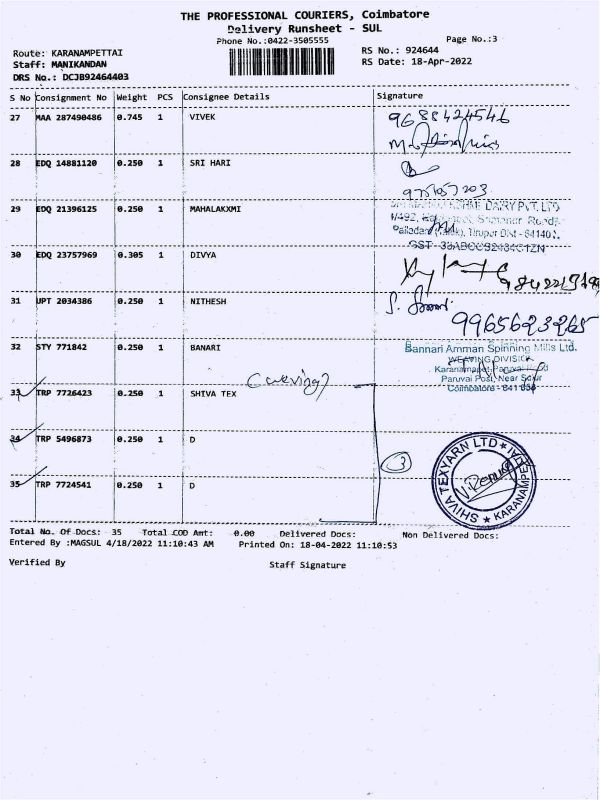 THE PROFESSIONAL COURIERS, Coimbatore
Delivery Runsheet - SUL
Phone No.:0422-3505555
Page No.:3
Route: KARANAMPETTAI
RS No.: 924644
Staff: MANIKANDAN
RS Date: 18-Apr-2022
DRS No.: DCJB92464403
S No Consignment No Weight PCS Consignee Details Signature
27 MAA 287490486 0.745 1 VIVEK 9688424546
28 EDQ 14881120 0.250 1 SRI HARI
29 EDQ 21396125 0.250 1 MAHALAKXMI
DAIRY PVT. LTD
30 EDQ 23757969 0.305 1 DIVYA
31 UPT 2034386 0.250 1 NITHESH
9965623265
32 STY 771842 0.250 1 BANARI Bannari Amman Spinning Mills Ltd.
WEAVING DIVISION
Paruvai Post, Near Sulur
Coimbatore - 641 658
33 TRP 7726423 0.250 1 SHIVA TEX
34 TRP 5496873 0.250 1 D
3
35 TRP 7724541 0.250 1 D
SHIVA TEXYARN LTD ★ KARANAMPETTAI ★
Total No. Of Docs: 35 Total COD Amt: 0.00 Delivered Docs: Non Delivered Docs:
Entered By :MAGSUL 4/18/2022 11:10:43 AM Printed On: 18-04-2022 11:10:53
Verified By Staff Signature